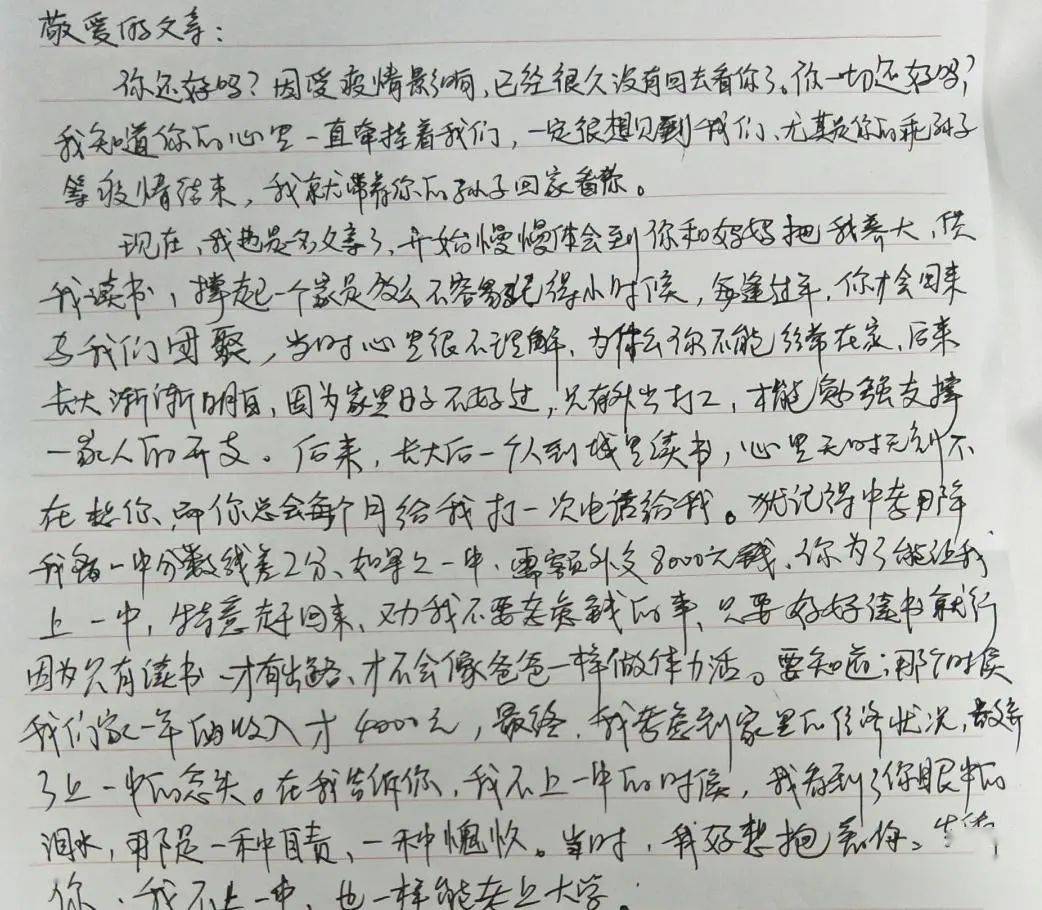 敬爱的父亲：
你还好吗？因受疫情影响，已经很久没有回去看你了。你一切还好吗？
我知道你的心里一直牵挂着我们，一定很想见到我们、尤其是你的乖孙子
等疫情结束，我就带着你的孙子回家看你。
现在，我也是名父亲了，开始慢慢体会到你和妈妈把我养大，供
我读书，撑起一个家是多么不容易。记得小时候，每逢过年，你才会回来
与我们团聚，当时心里很不理解，为什么你不能经常在家，后来
长大渐渐明白，因为家里日子不好过，只有外出打工，才能勉强支撑
一家人的开支。后来，长大后一个人到城里读书，心里无时无刻不
在想你、而你总会每个月给我打一次电话给我。犹记得中考那年
我离一中分数线差2分、如果上一中，需额外交8000元钱、你为了能让我
上一中，特意赶回来、劝我不要考虑钱的事、只要好好读书就行
因为只有读书才有出路、才不会像爸爸一样做体力活。要知道；那个时候
我们家一年的收入才4000元，最终，我考虑到家里的经济状况，放弃
了上一中的念头。在我告诉你，我不上一中的时候，我看到了你眼中的
泪水，那是一种自责、一种愧疚。当时，我好想抱着你、
你，我不上一中，也一样能考上大学。